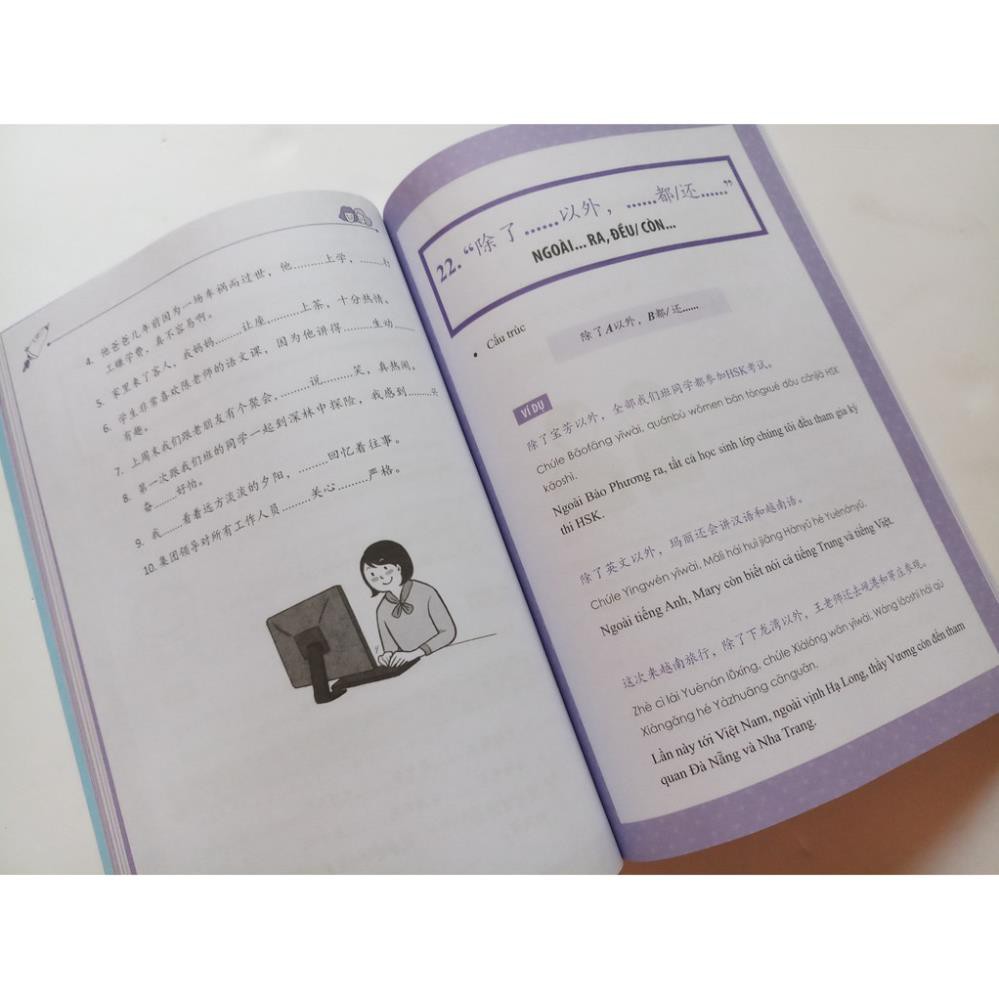 4. 他爸爸几年前因为一场车祸而过世，他.........上学，.........打
工赚学费，真不容易啊。
5. 家里来了客人，我妈妈.........让座.........上茶，十分热情。
6. 学生非常喜欢陈老师的语文课，因为他讲得.........生动.........
有趣。
7. 上周末我们跟老朋友有个聚会，.........说.........笑，真热闹。
8. 第一次跟我们班的同学一起到深林中探险，我感到.........兴
奋.........好怕。
9. 我.........看着远方淡淡的夕阳，.........回忆着往事。
10. 集团领导对所有工作人员.........关心.........严格。
22. “除了......以外，......都/还......”
NGOÀI... RA, ĐỀU/ CÒN...
• Cấu trúc
除了A以外，B都/还......
VÍ DỤ
除了宝芳以外，全部我们班同学都参加HSK考试。
Chúle Bǎofāng yǐwài, quánbù wǒmen bān tóngxué dōu cānjiā HSK
kǎoshì.
Ngoài Bảo Phương ra, tất cả học sinh lớp chúng tôi đều tham gia kỳ
thi HSK.
除了英文以外，玛丽还会讲汉语和越南语。
Chúle Yīngwén yǐwài, Mǎlì hái huì jiǎng Hànyǔ hé Yuènányǔ.
Ngoài tiếng Anh, Mary còn biết nói cả tiếng Trung và tiếng Việt.
这次来越南旅行，除了下龙湾以外，王老师还去岘港和芽庄参观。
Zhè cì lái Yuènán lǚxíng, chúle Xiàlóng wān yǐwài, Wáng lǎoshī hái qù
Xiàngǎng hé Yázhuāng cānguān.
Lần này tới Việt Nam, ngoài vịnh Hạ Long, thầy Vương còn đến tham
quan Đà Nẵng và Nha Trang.